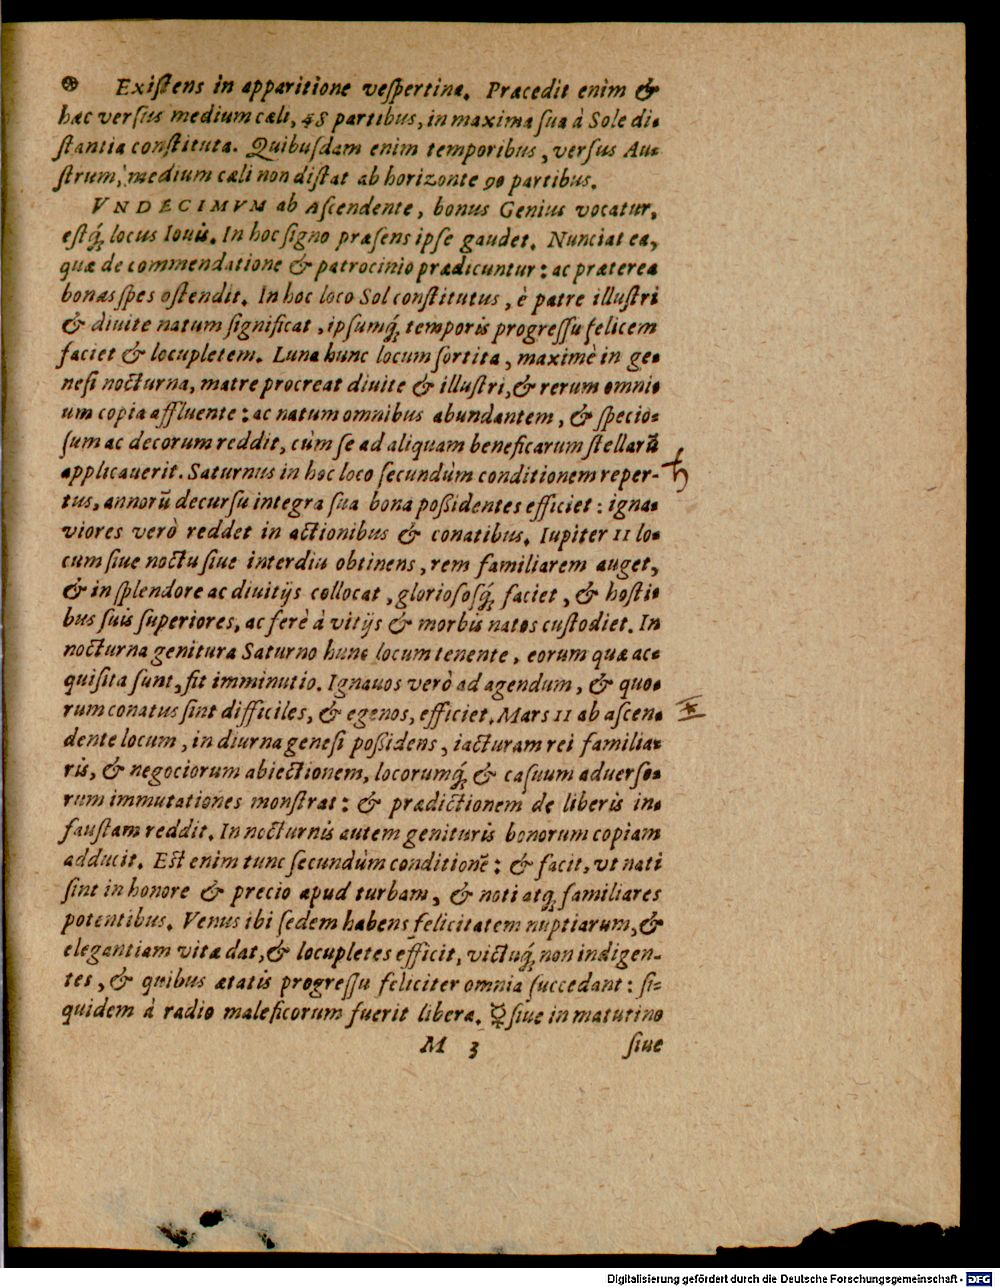 ⊛ Existens in apparitione vespertina. Præcedit enim &
hæc versus medium cæli, 48 partibus, in maxima sua à Sole di-
stantia constituta. Quibusdam enim temporibus, versus Au-
strum, medium cæli non distat ab horizonte 90 partibus.
VNDECIMVM ab Ascendente, bonus Genius vocatur,
estq́; locus Iouis. In hoc signo præsens ipse gaudet. Nunciat ea,
quæ de commendatione & patrocinio prædicuntur: ac præterea
bonas spes ostendit. In hoc loco Sol constitutus, è patre illustri
& diuite natum significat, ipsumq́; temporis progressu felicem
faciet & locupletem. Luna hunc locum sortita, maximè in ge-
nesi nocturna, matre procreat diuite & illustri, & rerum omni-
um copia affluente: ac natum omnibus abundantem, & specio-
sum ac decorum reddit, cùm se ad aliquam beneficarum stellarū
applicauerit. Saturnus in hoc loco secundùm conditionem reper-
♄
tus, annorū decursu integra sua bona possidentes efficiet: igna-
viores verò reddet in actionibus & conatibus. Iupiter 11 lo-
cum siue noctu siue interdiu obtinens, rem familiarem auget,
& in splendore ac diuitijs collocat, gloriososq́; faciet, & hosti-
bus suis superiores, ac ferè à vitijs & morbis natos custodiet. In
nocturna genitura Saturno hunc locum tenente, eorum quæ ac-
quisita sunt, fit imminutio. Ignauos verò ad agendum, & quo-
rum conatus sint difficiles, & egenos, efficiet. Mars 11 ab ascen-
dente locum, in diurna genesi possidens, iacturam rei familia-
ris, & negociorum abiectionem, locorumq́; & casuum aduerso-
rum immutationes monstrat: & prædictionem de liberis in-
faustam reddit. In nocturnis autem genituris bonorum copiam
adducit. Est enim tunc secundùm conditionē: & facit, vt nati
sint in honore & precio apud turbam, & noti atq́; familiares
potentibus. Venus ibi sedem habens felicitatem nuptiarum, &
elegantiam vitæ dat, & locupletes efficit, victuq́; non indigen-
tes, & quibus ætatis progressu feliciter omnia succedant: si-
quidem à radio maleficorum fuerit libera. ☿ siue in matutino
M 3 siue
Digitalisierung gefördert durch die Deutsche Forschungsgemeinschaft - DFG